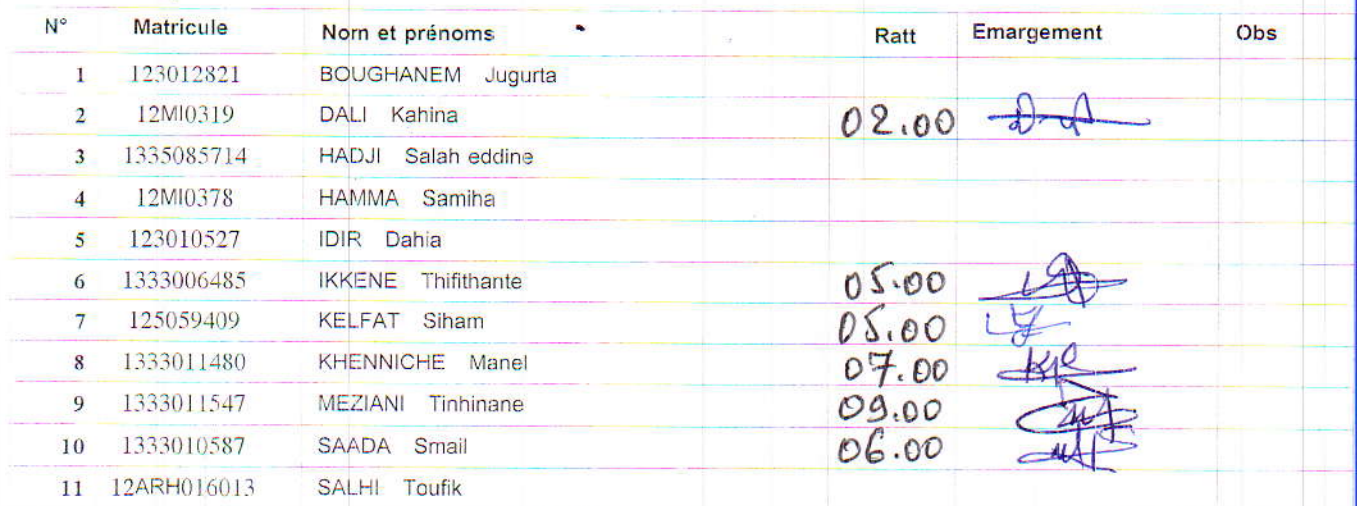 N° Matricule Nom et prénoms Ratt Emargement Obs
1 123012821 BOUGHANEM Jugurta
2 12MI0319 DALI Kahina 02.00
3 1335085714 HADJI Salah eddine
4 12MI0378 HAMMA Samiha
5 123010527 IDIR Dahia
6 1333006485 IKKENE Thifithante 05.00
7 125059409 KELFAT Siham 05.00
8 1333011480 KHENNICHE Manel 07.00
9 1333011547 MEZIANI Tinhinane 09.00
10 1333010587 SAADA Smail 06.00
11 12ARH016013 SALHI Toufik